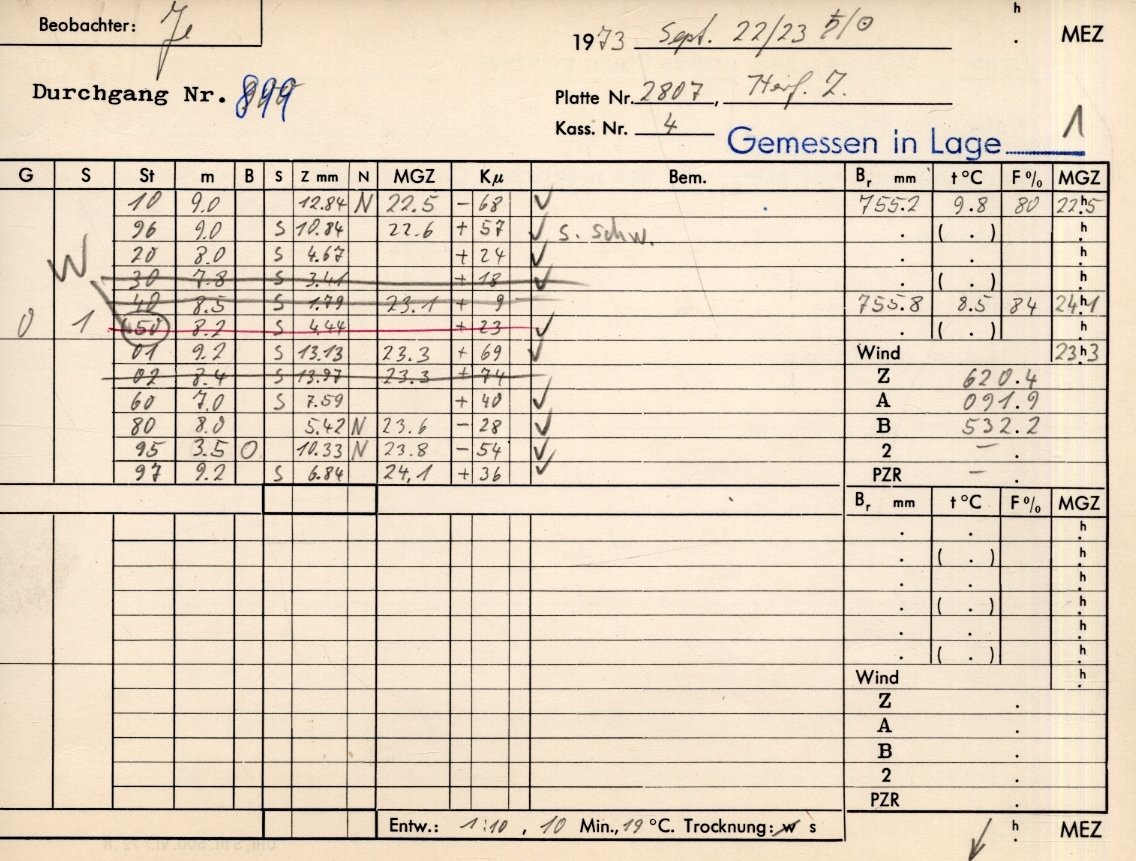 Beobachter: Je
h . MEZ
1973 Sept. 22/23 ♄/☉
Durchgang Nr. 899
Platte Nr. 2807,
Kass. Nr. 4
Gemessen in Lage 1
G S St m B S Z mm N MGZ Kμ Bem. Br mm t °C F % MGZ
10 9.0 12.84 N 22.5 - 68 ✓ 755.2 9.8 80 22h5
96 9.0 S 10.84 22.6 + 57 ✓ s. schw. . ( . ) h.
20 8.0 S 4.67 + 24 ✓ . . h.
W 30 7.8 S 3.41 + 18 ✓ . ( . ) h.
40 8.5 S 1.79 23.1 + 9 755.8 8.5 84 24h1
0 1 50 8.2 S 4.44 + 23 ✓ . ( . ) h.
01 9.2 S 13.13 23.3 + 69 ✓ Wind 23h3
02 8.4 S 13.97 23.3 + 74 Z 620.4
60 7.0 S 7.59 + 40 ✓ A 091.9
80 8.0 5.42 N 23.6 - 28 ✓ B 532.2
95 3.5 O 10.33 N 23.8 - 54 ✓ 2 — .
97 9.2 S 6.84 24,1 + 36 ✓ PZR — .
Br mm t °C F % MGZ
. . h.
. ( . ) h.
. . h.
. ( . ) h.
. . h.
. ( . ) h.
Wind h.
Z .
A .
B .
2 .
PZR .
Entw.: 1:10, 10 Min., 19 °C. Trocknung: w s
h . MEZ